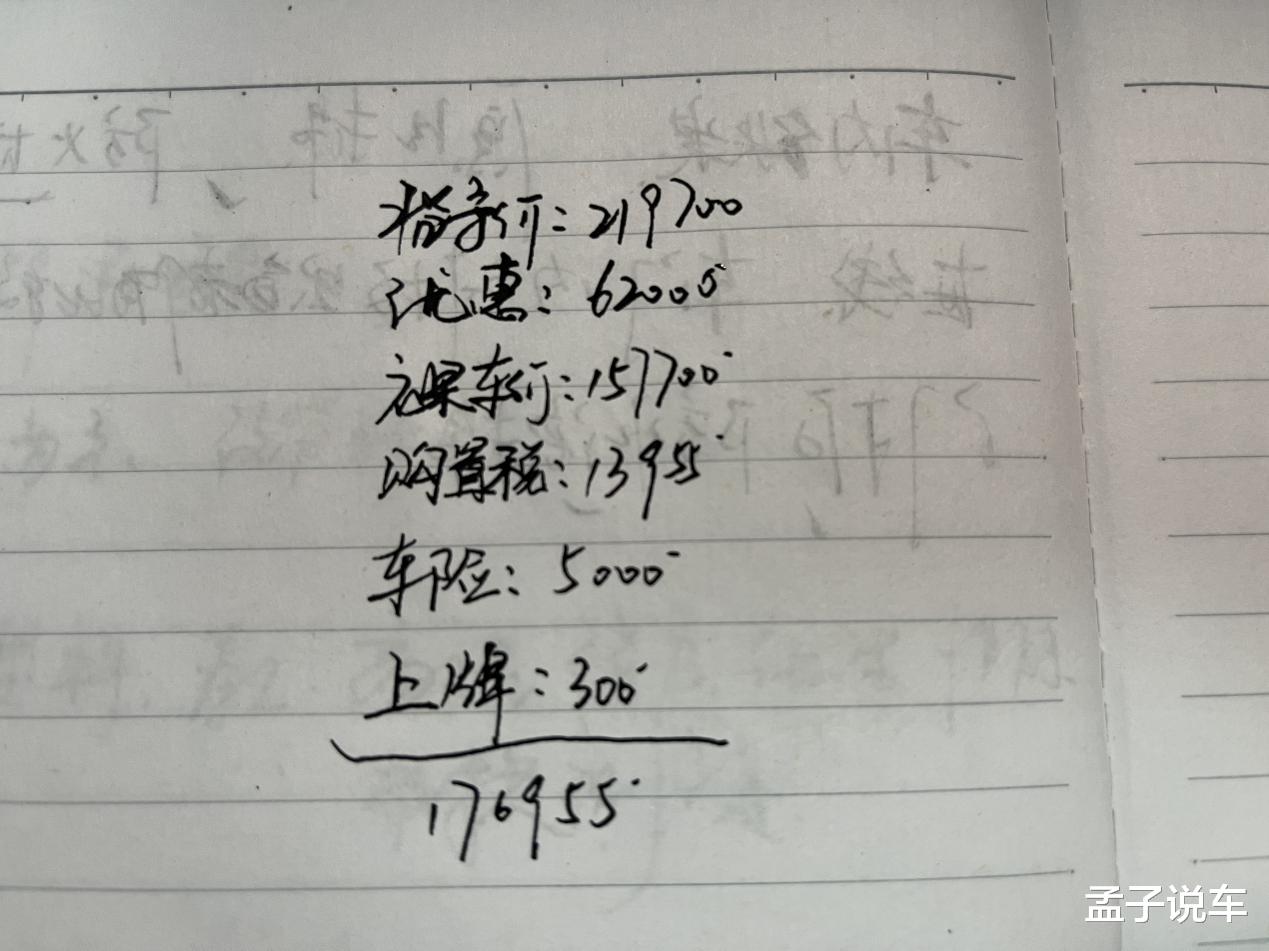 指导价：219700
优惠：62000
裸车价：157700
购置税：13955
车险：5000
上牌：300
176955
孟子说车